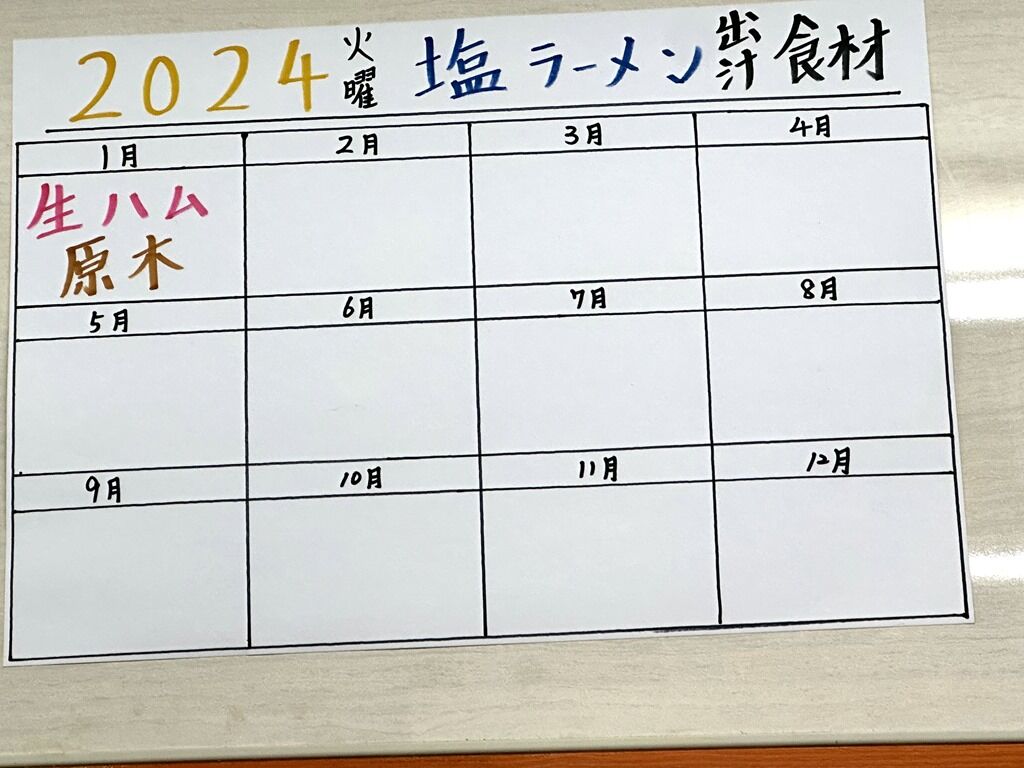 2024 火曜 塩ラーメン 出汁 食材
1月 2月 3月 4月
生ハム
原木
5月 6月 7月 8月
9月 10月 11月 12月